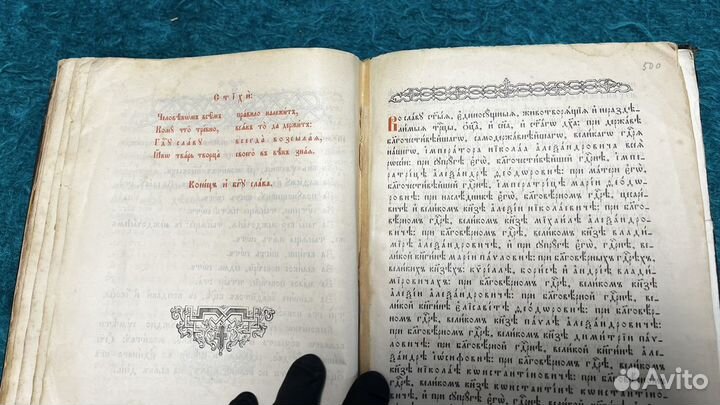 Стїхѝ:
Человѣкомъ всѣмъ правило належитъ,
Кому что требно, всякъ то да держитъ:
Гдⷭ҇у славу всегда возсылая,
Ꙗкѡ тварь творца своего въ вѣкъ зная.
Конецъ и бг҃у слава.
500
Во славу ст҃ыѧ, єдиносущныѧ, животворѧщїѧ и҆ неразде-
лимыѧ трⷪ҇цы, ѻ҆ц҃а, и҆ сн҃а, и҆ ст҃агѡ дх҃а: при державѣ
благочестивѣйшагѡ, самодержавнѣйшагѡ, великагѡ гдⷭ҇рѧ
нашегѡ, і҆мператора нїкола́а а҆леѯандровича всеѧ
рѡссїи: при супрꙋгѣ є҆гѡ̀, благочестивѣйшей гдⷭ҇рнѣ, і҆мпе-
ратрицѣ а҆леѯандрѣ ѳеодѡровнѣ: при матери є҆гѡ̀,
благочестивѣйшей гдⷭ҇рнѣ, і҆мператрицѣ марїи ѳеодѡ-
ровнѣ: при наслѣдникѣ є҆гѡ̀, благовѣрномъ гдⷭ҇рѣ, цесаре-
вичѣ и҆ великомъ кнѧзѣ а҆леѯїи нїколаевичѣ: при
благовѣрномъ гдⷭ҇рѣ, великомъ кнѧзѣ мїхаилѣ а҆леѯандро-
вичѣ: при благовѣрномъ гдⷭ҇рѣ, великомъ кнѧзѣ влади-
мїрѣ а҆леѯандровичѣ, и҆ при супрꙋгѣ є҆гѡ̀, благовѣрной гдⷭ҇рнѣ, ве-
ликой кнѧгинѣ марїи павловнѣ: при благовѣрныхъ гдⷭ҇рѣхъ,
великихъ кнѧзехъ: кѷрїллѣ, борисѣ и҆ а҆ндреѣ влади-
мїровичахъ: при благовѣрномъ гдⷭ҇рѣ, великомъ кнѧзѣ
а҆леѯїи а҆леѯандровичѣ: при благовѣрной гдⷭ҇рнѣ, ве-
ликой кнѧгинѣ є҆лїсаветѣ ѳеодѡровнѣ: при благовѣр-
номъ гдⷭ҇рѣ, великомъ кнѧзѣ паѵлѣ а҆леѯандровичѣ:
при благовѣрномъ гдⷭ҇рѣ, великомъ кнѧзѣ димитрїи па-
вловичѣ: при благовѣрной гдⷭ҇рнѣ, великой кнѧгинѣ а҆ле-
ѯандрѣ і҆ѡсифовнѣ: при благовѣрномъ гдⷭ҇рѣ, великомъ
кнѧзѣ кѡнстантїнѣ кѡнстантїновичѣ, и҆
при супрꙋгѣ є҆гѡ̀, благовѣрной гдⷭ҇рнѣ, великой
Avito